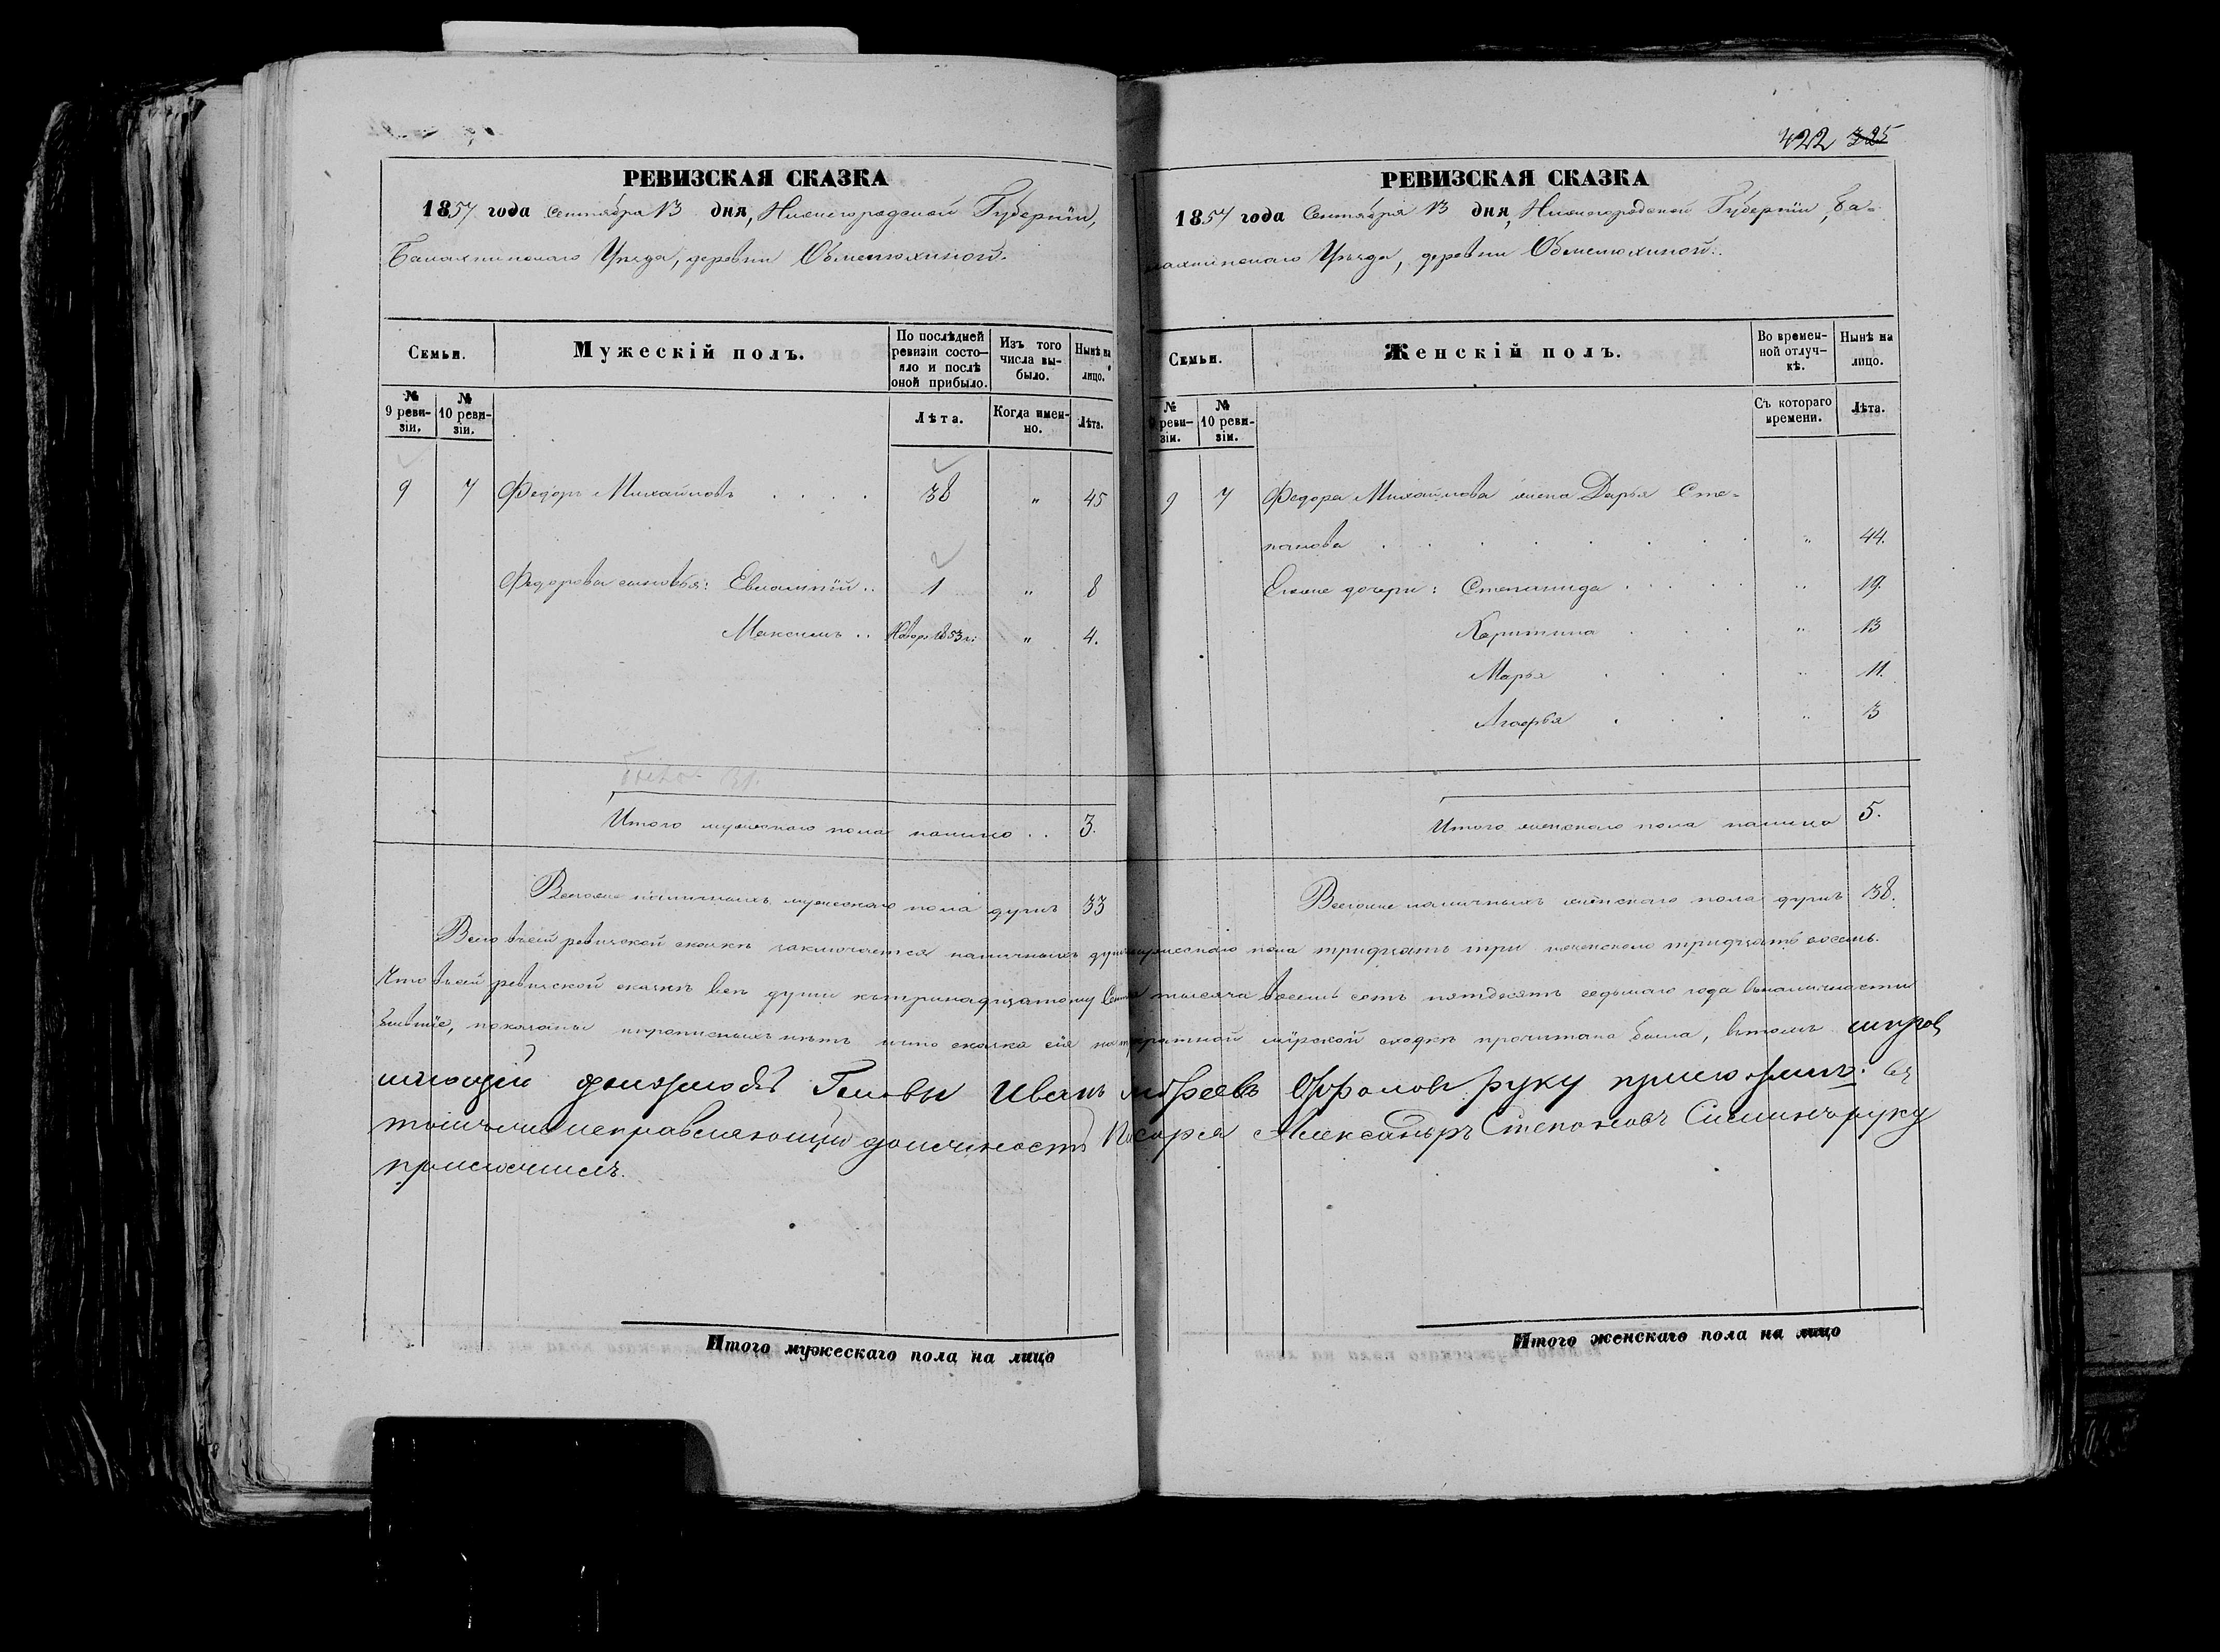 422 325
РЕВИЗСКАЯ СКАЗКА
1857 года Сентября 13 дня, Нижегородской Губернiи,
Балахнинскаго Уѣзда, деревни
Семьи.
Мужескiй полъ.
По послѣдней ревизiи состо-
яло и послѣ оной прибыло.
Изъ того числа вы-
было.
Нынѣ на лицо.
№ 9 реви-
зiи.
№ 10 реви-
зiи.
Лѣта.
Когда имен-
но.
Лѣта.
9 7 Федоръ Михайловъ . . . . 38 " 45
Федоровы сыновья: Евлампiй .. 1 " 8
Максимъ .. Новор: 1853 г: " 4.
Итого мужескаго пола налицо . . 3.
Всегоже наличныхъ мужескаго пола душъ 33
РЕВИЗСКАЯ СКАЗКА
1857 года Сентября 13 дня, Нижегородской Губернiи, Ба=
лахнинскаго Уѣзда, деревни
Семьи.
Женскiй полъ.
Во времен-
ной отлуч-
кѣ.
Нынѣ на лицо.
№ 9 реви-
зiи.
№ 10 реви-
зiи.
Съ котораго времени.
Лѣта.
9 7 Федора Михайлова жена Дарья Сте=
панова . . . . . . . . " 44.
Ихние дочери: Степанида . . . . " 19.
Харитина . . . " 13
Марья . . . " 11.
Агафья . . . " 3
Итого женскаго пола налицо 5.
Всегоже наличныхъ женскаго пола душъ 38.
Всего въсей ревизской сказкѣ заключается наличныхъ душъ мужескаго пола тридцать три и женскаго тридцать восемь.
Что въсей ревизской сказкѣ всѣ души къ тринадцатому Сентября тысяча восемь сотъ пятдесятъ седьмаго года въналичности
бывшiе, показаны и прописныхъ нѣтъ и что сказка сiя на мiрской сходкѣ прочитана была, вътомъ
должность Головы Иванъ руку приложилъ: въ
томъ исправляющий должность Писаря Александръ Степановъ руку
приложилъ.
Итого мужескаго пола на лицо
Итого женскаго пола на лицо